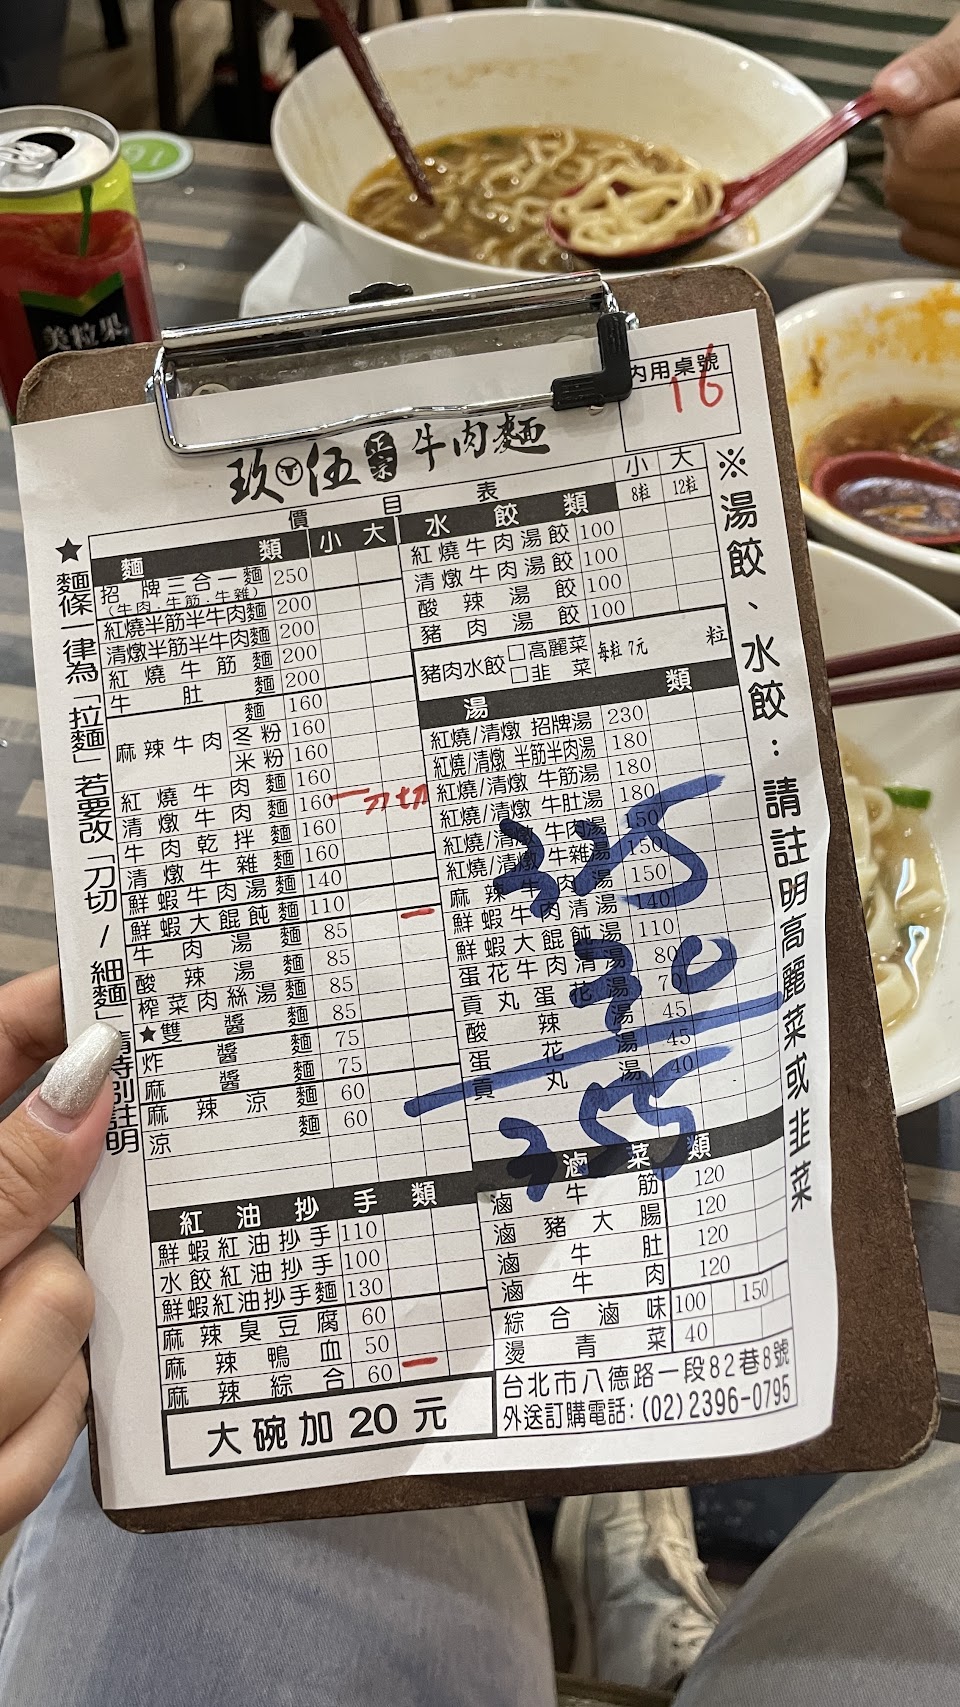 美粒果
內用桌號
16
玖伍牛肉麵
價目表
★麵條一律為「拉麵」若要改「刀切/細麵」請特別註明
麵類 小 大
招牌三合一麵 250
(牛肉.牛筋.牛雜)
紅燒半筋半牛肉麵 200
清燉半筋半牛肉麵 200
紅燒牛筋麵 200
牛肚麵 200
麻辣牛肉 麵 160
冬粉 160
米粉 160
紅燒牛肉麵 160
清燉牛肉麵 160 一刀切
牛肉乾拌麵 160
清燉牛雜麵 160
鮮蝦牛肉湯麵 140
鮮蝦大餛飩麵 110 一
牛肉湯麵 85
酸辣湯麵 85
榨菜肉絲湯麵 85
★雙醬麵 85
炸醬麵 75
麻醬麵 75
麻辣涼麵 60
涼麵 60
紅油抄手類
鮮蝦紅油抄手 110
水餃紅油抄手 100
鮮蝦紅油抄手麵 130
麻辣臭豆腐 60
麻辣鴨血 50
麻辣綜合 60 一
大碗加20元
水餃類 小 8粒 大 12粒
紅燒牛肉湯餃 100
清燉牛肉湯餃 100
酸辣湯餃 100
豬肉湯餃 100
豬肉水餃 □高麗菜 □韭菜 每粒7元 粒
湯類
紅燒/清燉 招牌湯 230
紅燒/清燉 半筋半肉湯 180
紅燒/清燉 牛筋湯 180
紅燒/清燉 牛肚湯 180
紅燒/清燉 牛肉湯 150
紅燒/清燉 牛雜湯 150
麻辣牛肉湯 150
鮮蝦牛肉清湯 140
鮮蝦大餛飩湯 110
蛋花牛肉清湯 80
貢丸蛋花湯 70
酸辣湯 45
蛋花湯 45
貢丸湯 40
滷菜類
滷牛筋 120
滷豬大腸 120
滷牛肚 120
滷牛肉 120
綜合滷味 100 150
燙青菜 40
台北市八德路一段82巷8號
外送訂購電話:(02)2396-0795
※湯餃、水餃:請註明高麗菜或韭菜